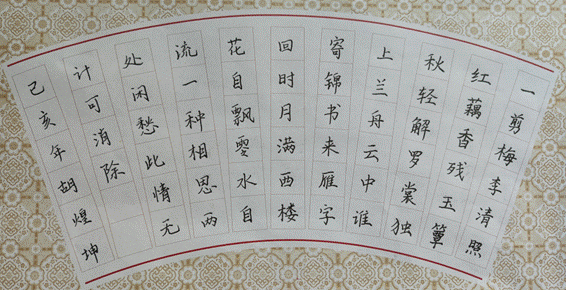 一剪梅李清照
红藕香残玉簟
秋轻解罗裳独
上兰舟云中谁
寄锦书来雁字
回时月满西楼
花自飘零水自
流一种相思两
处闲愁此情无
计可消除
己亥年胡煌坤